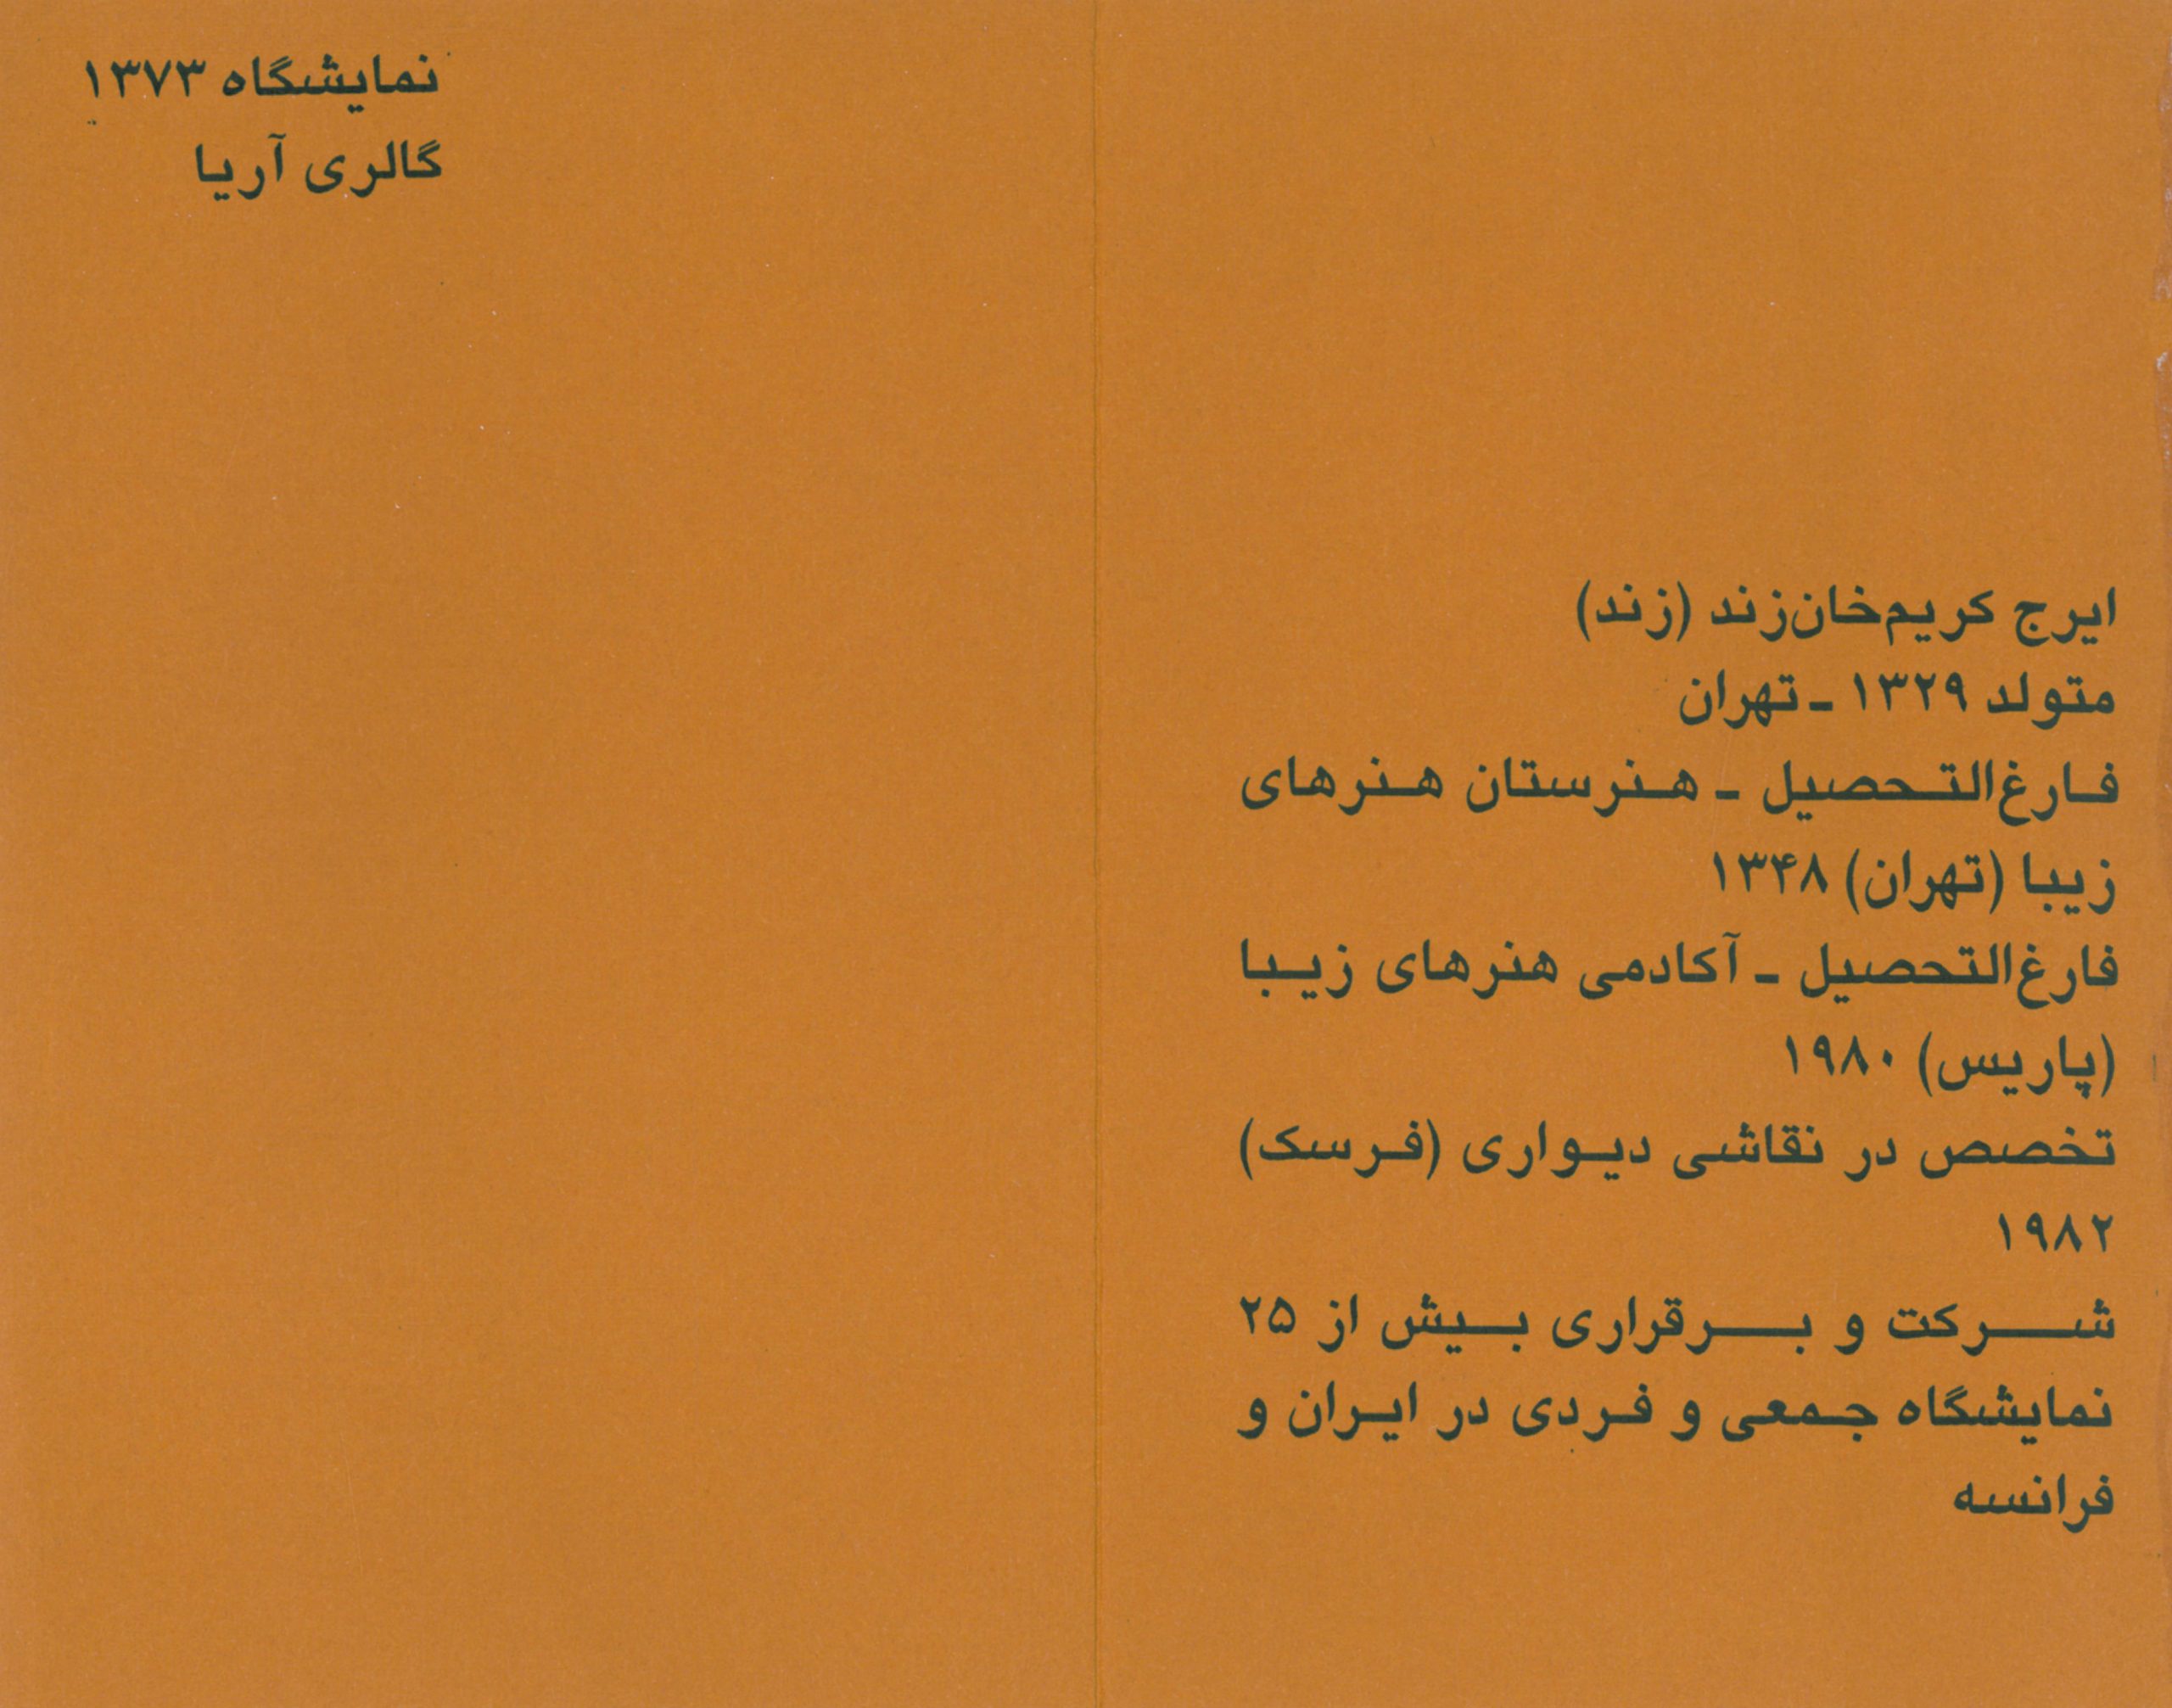 ایرج کریم‌خان‌زند (زند)
متولد ۱۳۲۹ ـ تهران
فارغ‌التحصیل ـ هنرستان هنرهای
زیبا (تهران) ۱۳۴۸
فارغ‌التحصیل ـ آکادمی هنرهای زیبا
(پاریس) ۱۹۸۰
تخصص در نقاشی دیواری (فرسک)
۱۹۸۲
شرکت و برقراری بیش از ۲۵
نمایشگاه جمعی و فردی در ایران و
فرانسه
نمایشگاه ۱۳۷۳
گالری آریا